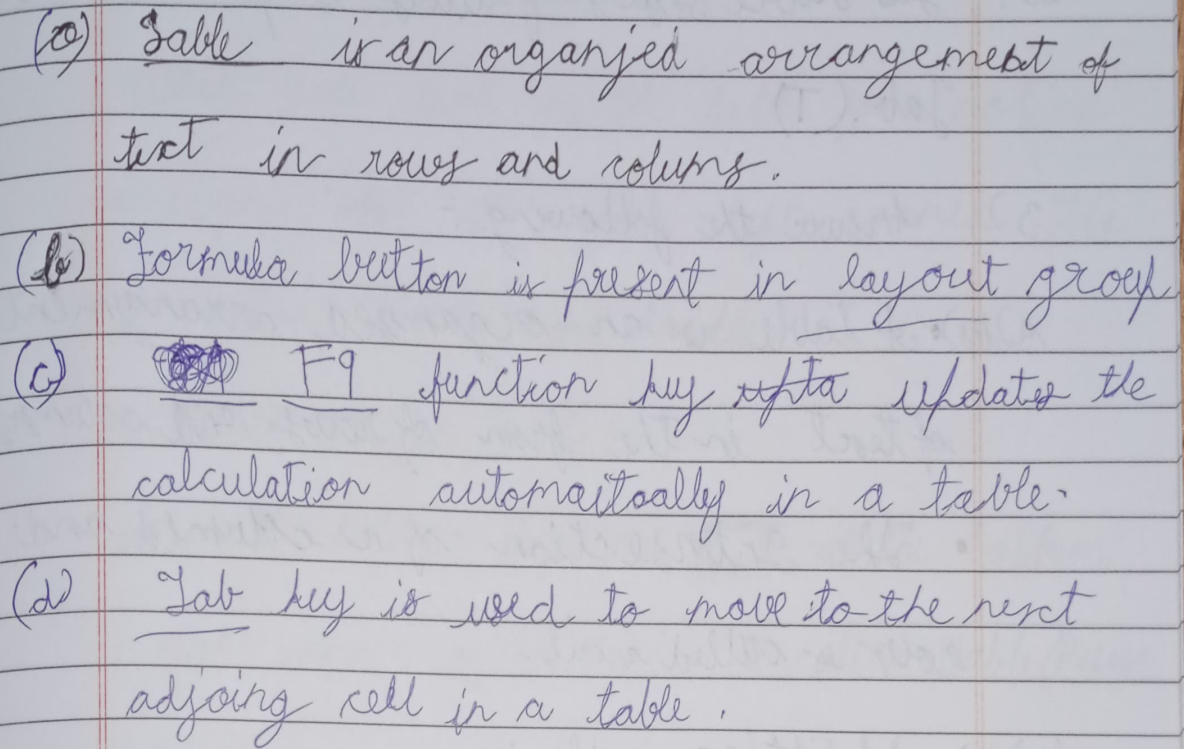 (a) Table is an organjed arrangement of
text in rows and colums.
(b) Formula button is present in layout group
(c) F9 function key updates the
calculation automaitcally in a table.
(d) Tab key is used to move to the next
adjoing cell in a table.